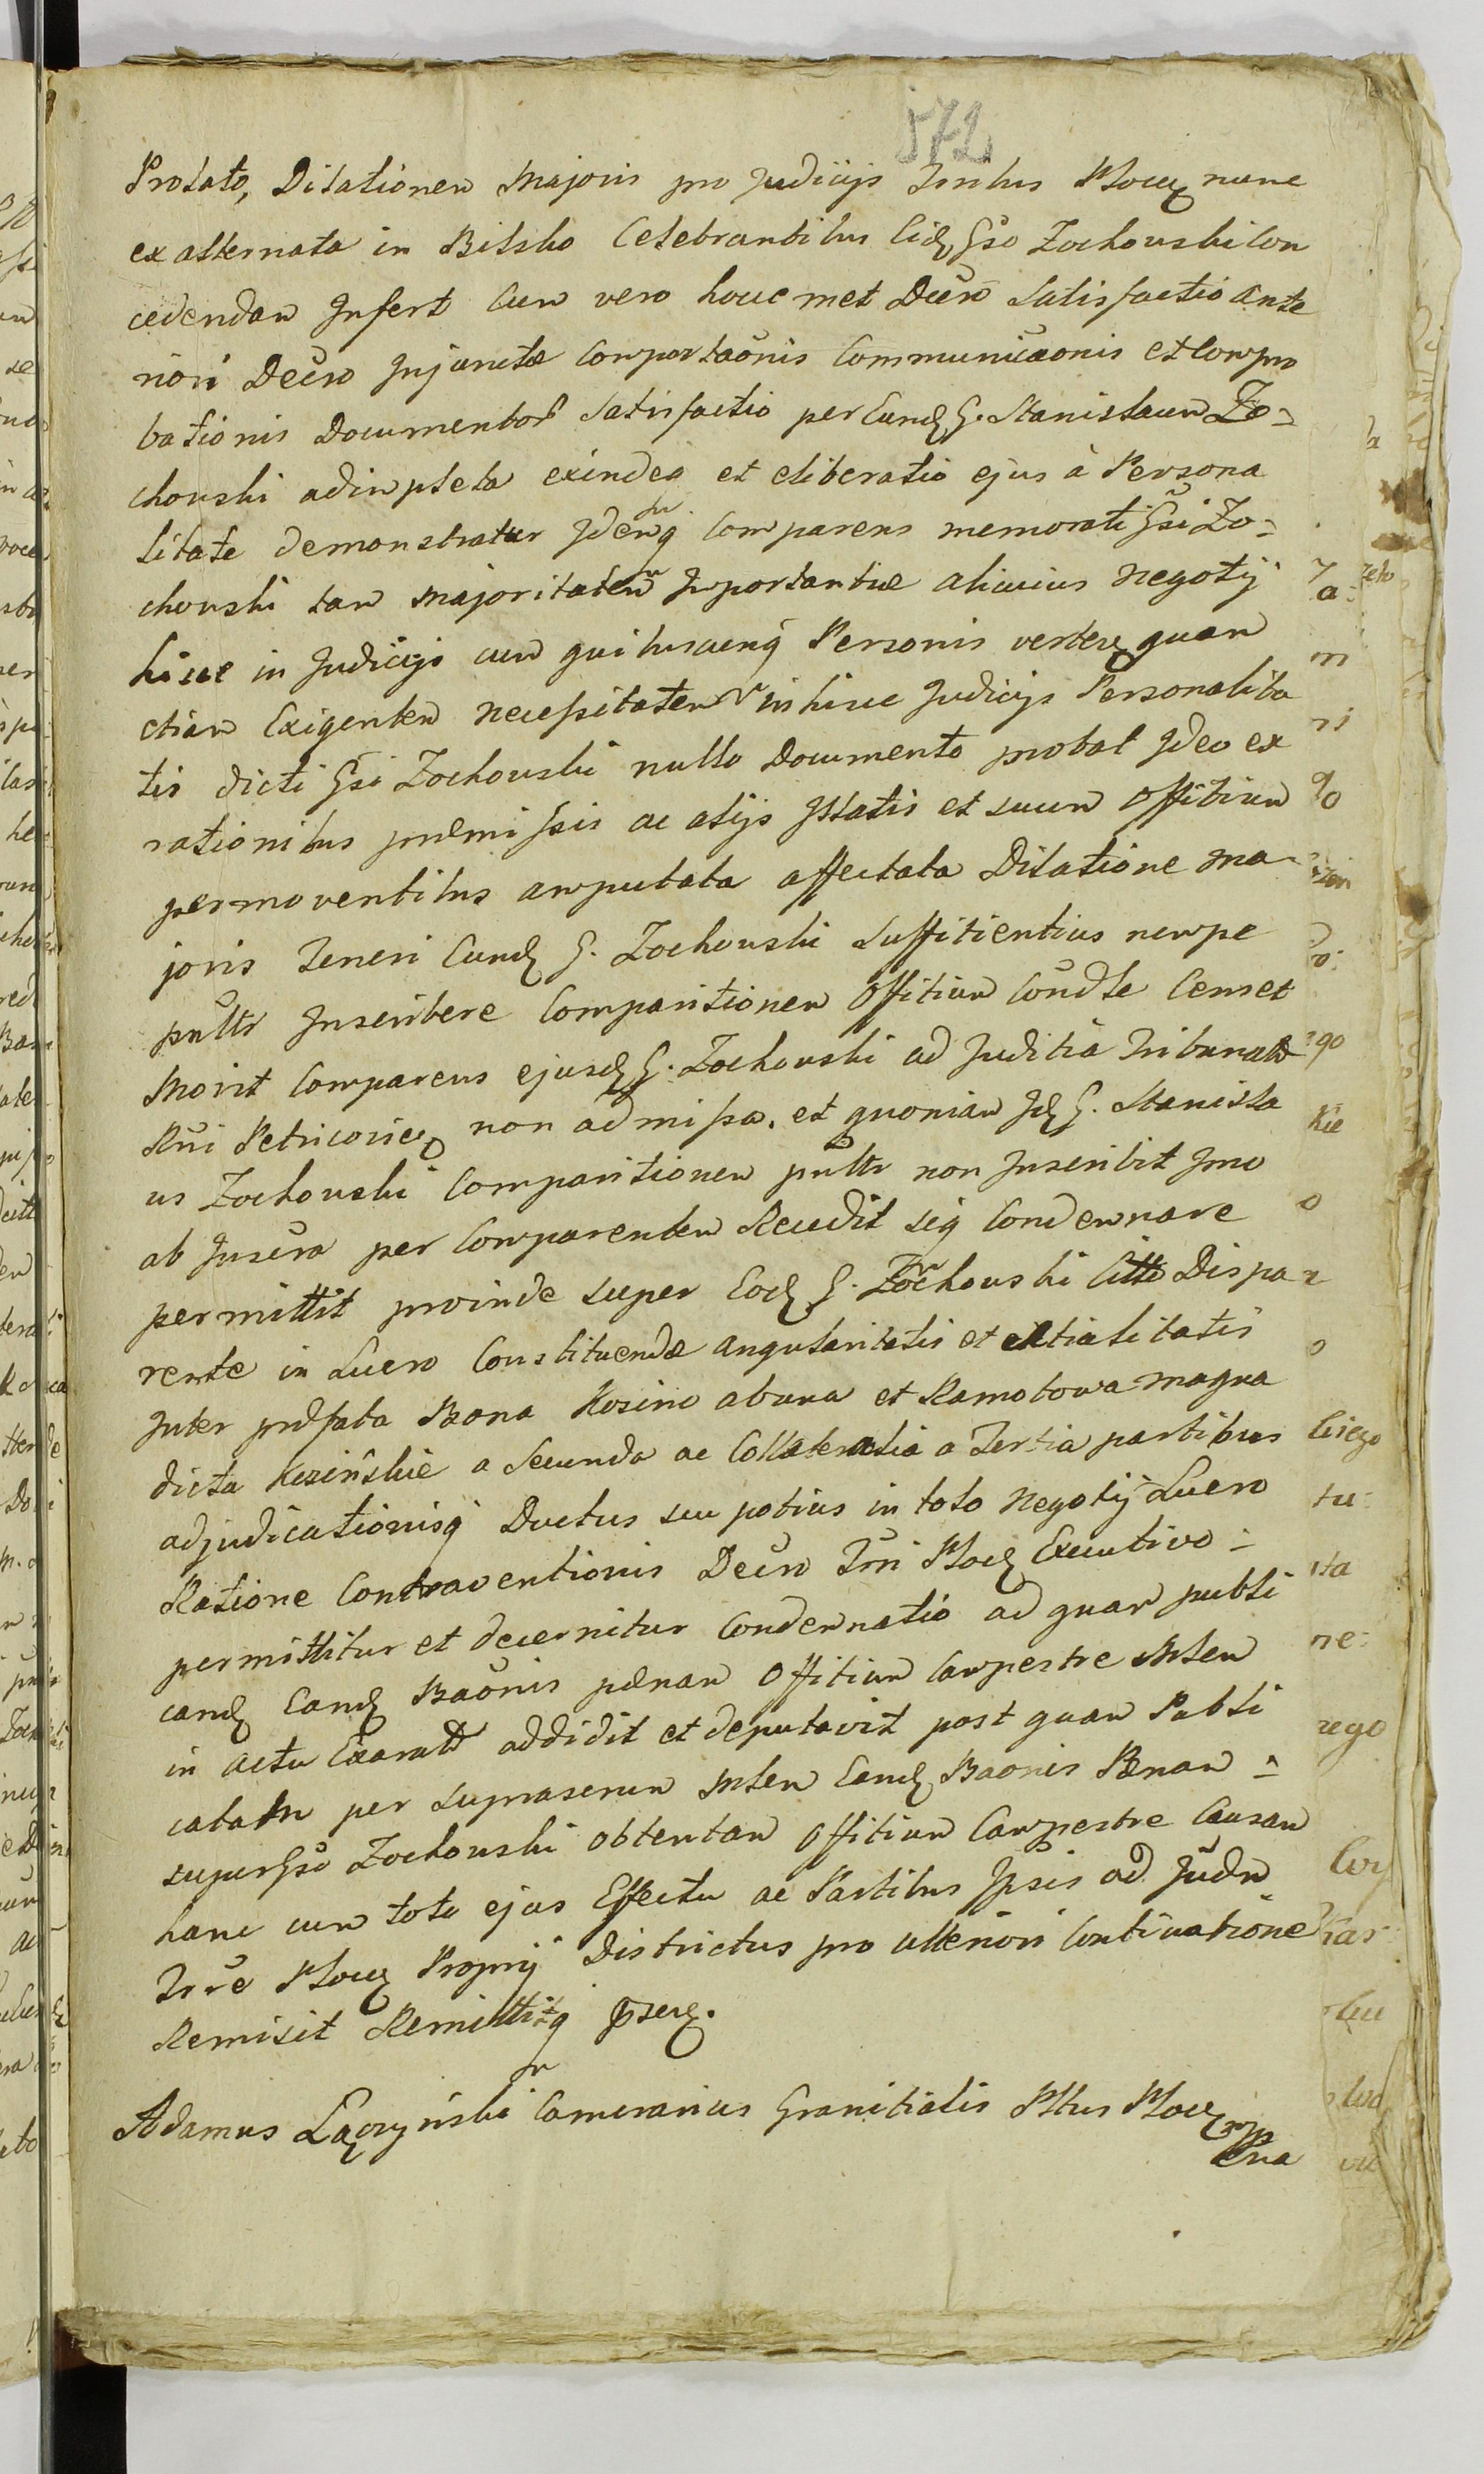 572
Prolato, Dilationem Majoris pro Judicijs Trnlus Plocen nunc
ex alternata in Bilsko Celebrantibus Eid Gso Zochowski Con
cedendam Infert Cum vero hocce met Decro Satisfactio Ante
riori Decro Injunctæ Comportaonis Communicaonis et Compro
bationis Documentor Satisfactio per Eund G. Stanislaum Zo=
chowski adimpleta exindeq et eliberatio ejus à Persona
litate demonstratur Idemq Comparens memorati Gsi Zo=
chowski tam Majoritatem Importantiæ alicuius Negotij
hisce in Judicijs cum quibuscunq Personis verten quam
etiam Exigentem necessitatem in hisce Judicijs Personalita
tis dicti Gsi Zochowski nullo Documento probat Ideo ex
rationibus præmissis ac alijs Illatis et suum Offitium
permoventibus amputata affectata Dilatione Ma
joris Teneri Eund G. Zochowski Suffitientius nempe
pnltr Inscribere Comparitionem Offitium Condle Censet
Movit Comparens ejusd G. Zochowski ad Juditia Tribunalis
Rni Petricovien non admissa. et quoniam Id G. Stanisla
us Zochowski Comparitionem pnltr non Inscribit Imo
ab Inscra per Comparentem Recedit seq Condemnare
permittit proinde super Eod G. Zochowski Citto Dispa
rente in Lucro Constituendæ angularitatis et
Inter præfata Bona Kosino abuna et Ramotowa magna
dicta Kosinskie a Secunda ac Collateralia a Tertia partibus
adjudicationisq Ductus seu potius in toto Negotij Lucro
Ratione Contraventionis Decro Trni Plocen Executivo =
permittitur et decernitur Condemnatio ad quam publi
cand Eand Baonis pænam Offitium Campestre Mlem
in actu addidit et deputavit post quam Publi
catam per Suprascrum Mlem Eand Baonis Pænam =
super Gso Zochowski obtentam Offitium Campestre Causam
hanc cum toto ejus Effectu ac Partibus Ipsis ad Judm
Trre Plocen Proprij Districtus pro ulteriori Continuatione
Remisit Remittitq
Adamus Łączyński Camerarius Granitialis Pltus Plocen
mp